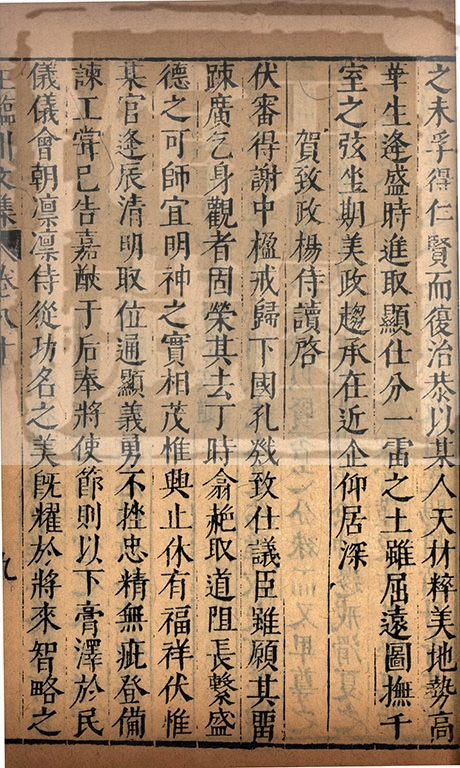 之未孚得仁賢而復治恭以某人天材粹美地勢高
華生逢盛時進取顯仕分一雷之土雖屈遠圖撫千
室之弦坐期美政趨承在近企仰居深
賀致政楊侍讀啓
伏審得謝中楹戒歸下國孔戣致仕議臣雖願其畱
踈廣乞身觀者固榮其去丁時翕赩取道阻長繫盛
德之可師宜明神之實相茂惟興止休有福祥伏惟
某官逢辰清明取位通顯義勇不挫忠精無疵登備
諫工嘗巳告嘉猷于后奉將使節則以下膏澤於民
儀儀會朝凛凛侍從功名之美旣耀於將來智略之
王臨川文集 卷八十 九